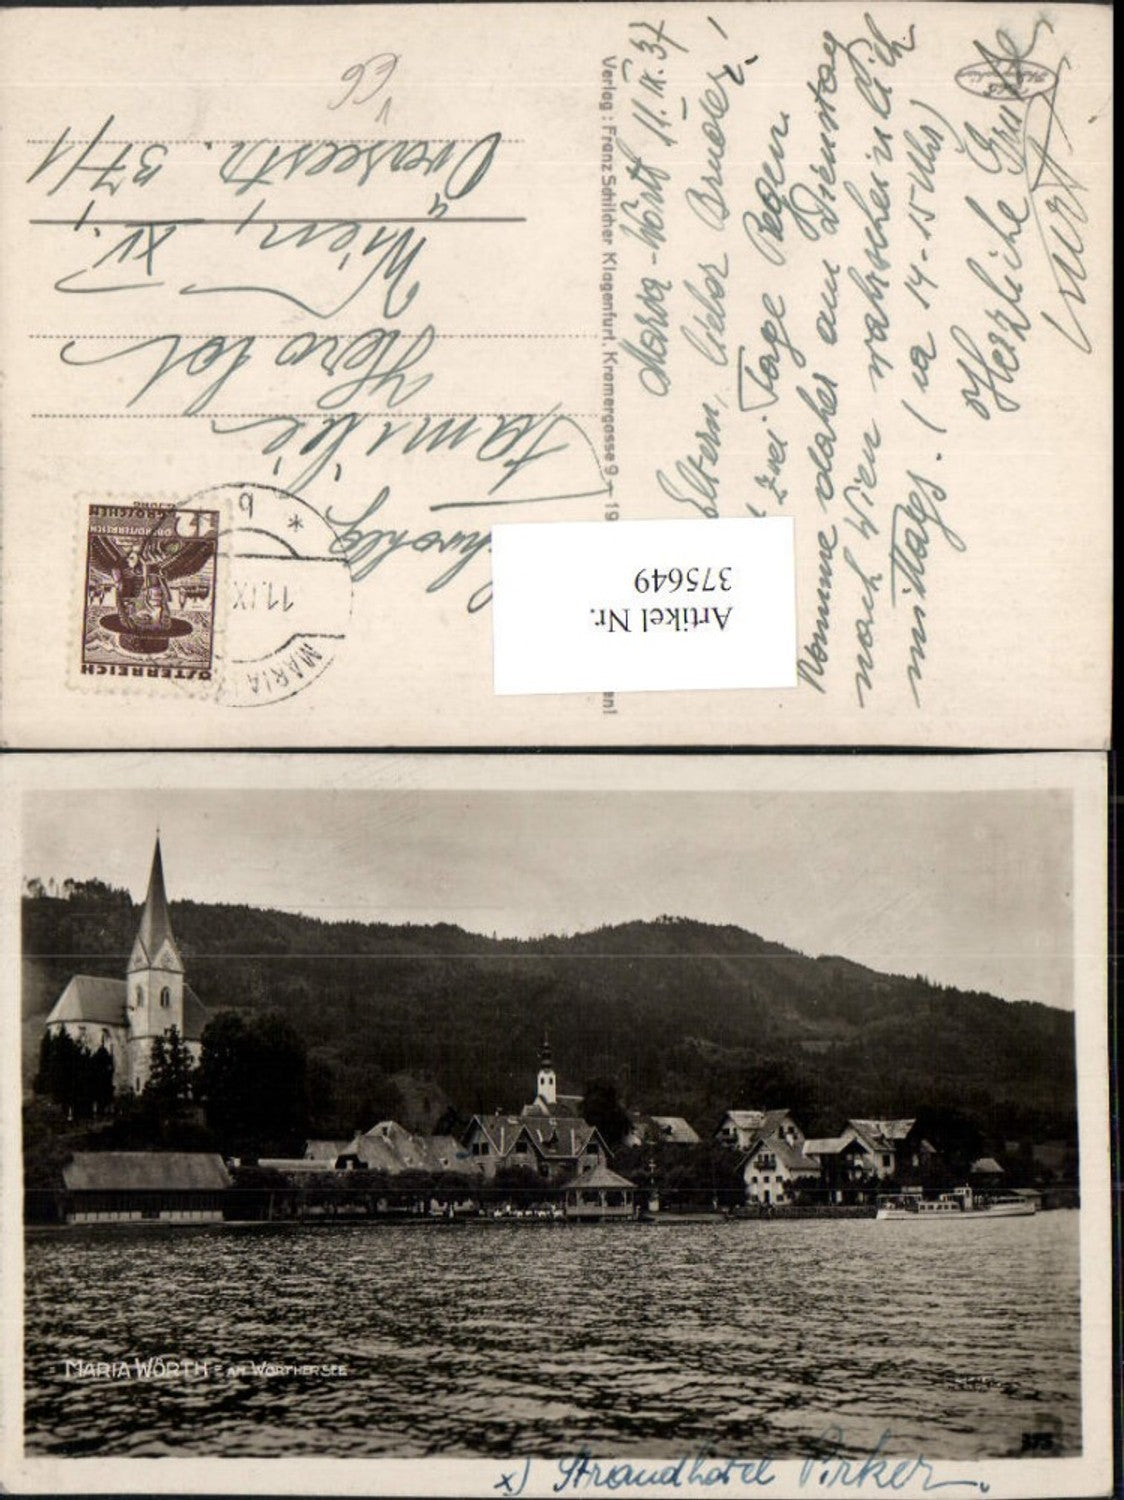 Maria-Wörth 11.IX.37
Eltern, lieber Bruder!
zwei Tage Regen.
Komme daher am Dienstag
nach Wien wahrscheinlich
mittags. (ca 14-15 Uhr)
Herzliche Grüße
Kurt
Verlag: Franz Schilcher Klagenfurt, Kramergasse 9 – 19
en!
Familie
Herold
Wien, XV.,
37/1
ÖSTERREICH
GROSCHEN
MARIA
11.IX
b
Artikel Nr.
375649
MARIA WÖRTH AM WÖRTHERSEE
375
x) Strandhotel Pirker.